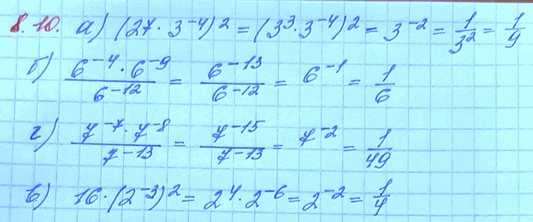 8.10. а) (27 · 3⁻⁴)² = (3³ · 3⁻⁴)² = 3⁻² = 1/3² = 1/9
б) (6⁻⁴ · 6⁻⁹)/6⁻¹² = 6⁻¹³/6⁻¹² = 6⁻¹ = 1/6
г) (7⁻⁷ · 7⁻⁸)/7⁻¹³ = 7⁻¹⁵/7⁻¹³ = 7⁻² = 1/49
в) 16 · (2⁻³)² = 2⁴ · 2⁻⁶ = 2⁻² = 1/4